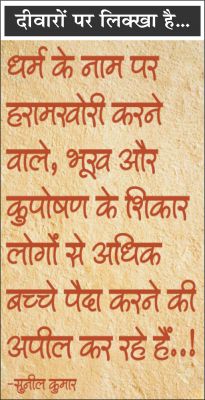 दीवारों पर लिक्खा है...
धर्म के नाम पर
हरामखोरी करने
वाले, भूख और
कुपोषण के शिकार
लोगों से अधिक
बच्चे पैदा करने की
अपील कर रहे हैं..!
-सुनील कुमार